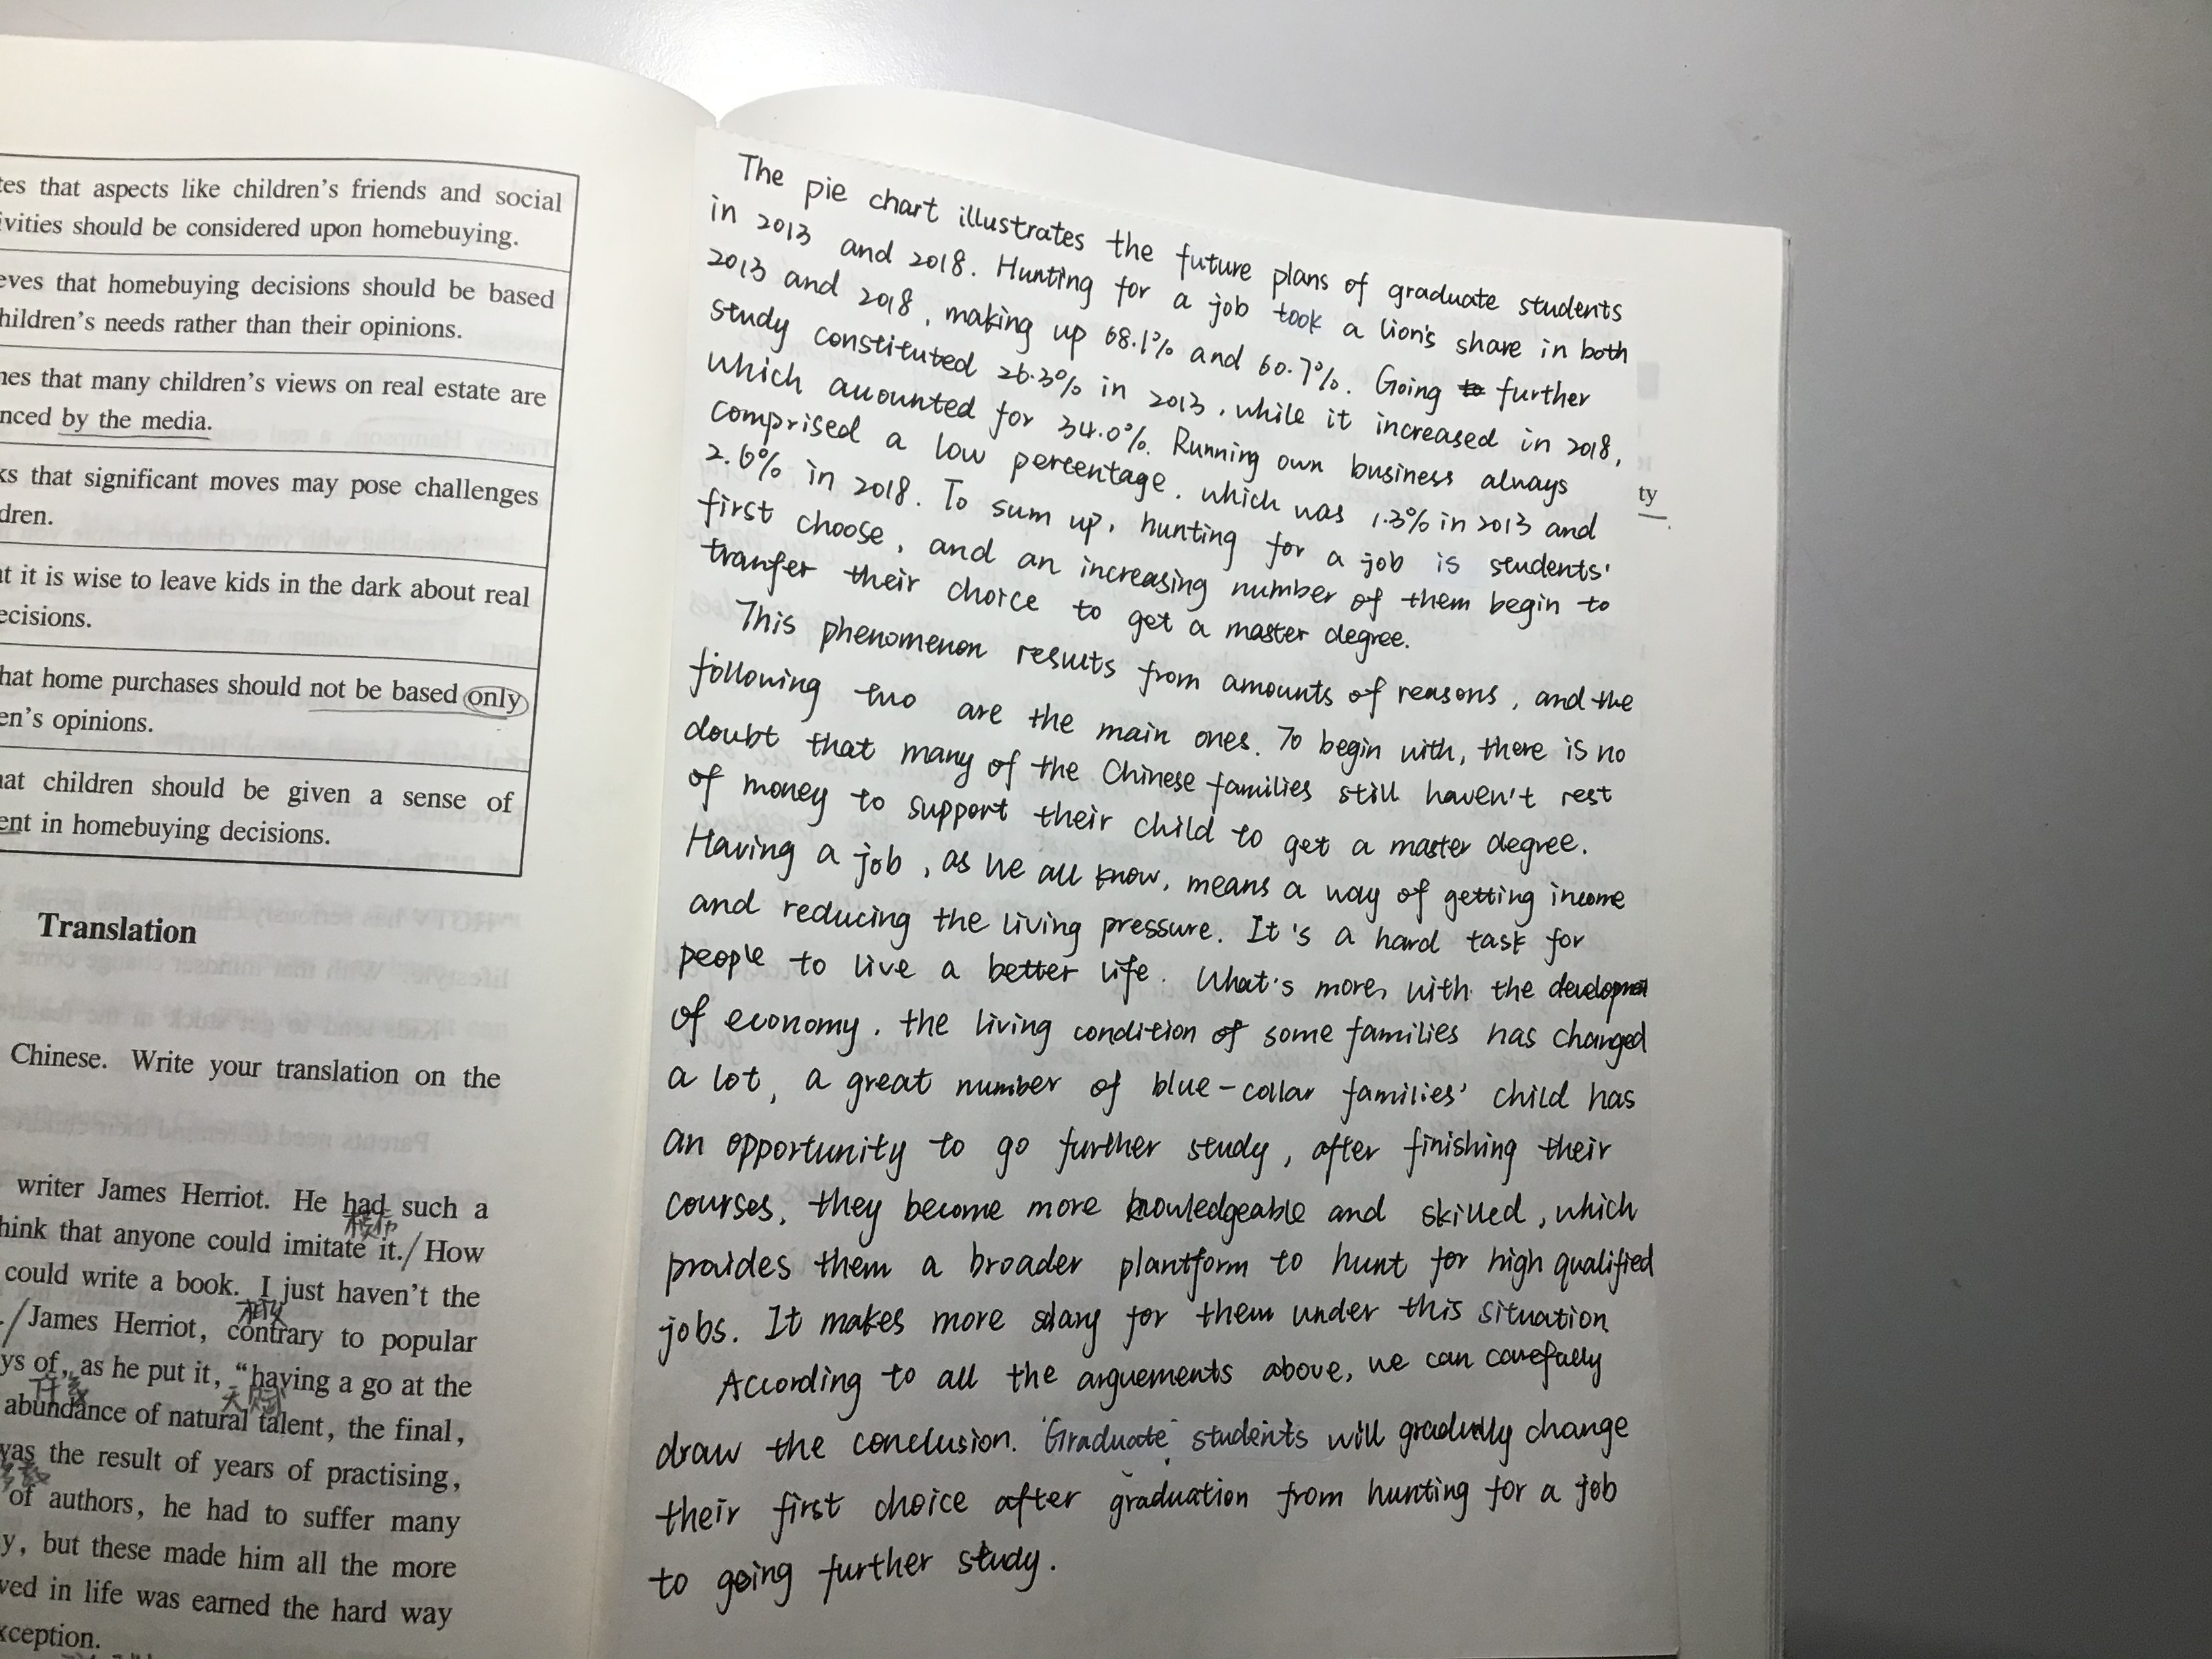 tes that aspects like children's friends and social
ivities should be considered upon homebuying.
eves that homebuying decisions should be based
hildren's needs rather than their opinions.
nes that many children's views on real estate are
nced by the media.
ks that significant moves may pose challenges
dren.
at it is wise to leave kids in the dark about real
ecisions.
hat home purchases should not be based only
en's opinions.
hat children should be given a sense of
ent in homebuying decisions.
Translation
Chinese. Write your translation on the
writer James Herriot. He had such a
模仿
hink that anyone could imitate it./How
could write a book. I just haven't the
./James Herriot, contrary to popular
ys of, as he put it, "having a go at the
天赋
abundance of natural talent, the final,
was the result of years of practising,
of authors, he had to suffer many
y, but these made him all the more
ved in life was earned the hard way
xception.
The pie chart illustrates the future plans of graduate students
in 2013 and 2018. Hunting for a job took a lion's share in both
2013 and 2018, making up 68.1% and 60.7%. Going further
study constituted 26.3% in 2013, while it increased in 2018,
which amounted for 34.0%. Running own business always
comprised a low percentage, which was 1.3% in 2013 and
2.6% in 2018. To sum up, hunting for a job is students'
first choose, and an increasing number of them begin to
tranfer their choice to get a master degree.
This phenomenon results from amounts of reasons, and the
following two are the main ones. To begin with, there is no
doubt that many of the Chinese families still haven't rest
of money to support their child to get a master degree.
Having a job, as we all know, means a way of getting income
and reducing the living pressure. It's a hard task for
people to live a better life. What's more, with the
of economy, the living condition of some families has changed
a lot, a great number of blue-collar families' child has
an opportunity to go further study, after finishing their
courses, they become more knowledgeable and skilled, which
proides them a broader plantform to hunt for high qualified
jobs. It makes more salary for them under this situation.
According to all the arguements above, we can carefully
draw the conclusion. Graduate students will gradually change
their first choice after graduation from hunting for a job
to going further study.
ty